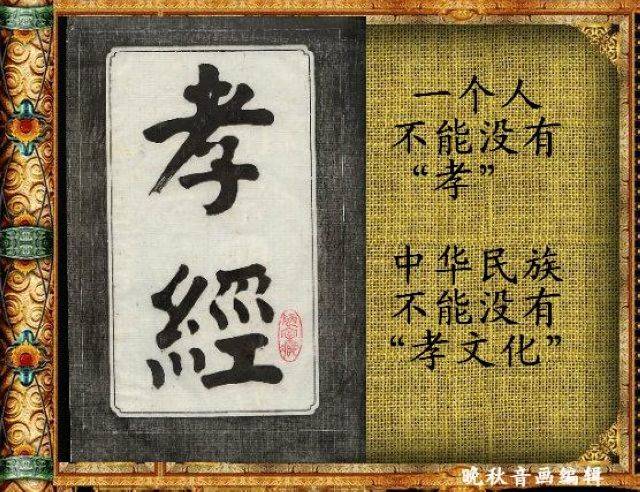 孝
經
一个人
不能没有
“孝”
中华民族
不能没有
“孝文化”
晚秋音画编辑